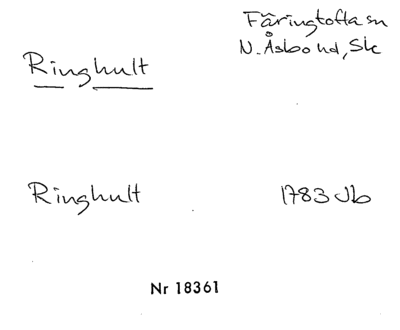 Färingtofta sn
N. Åsbo hd, Sk
Ringhult
Ringhult 1783 Jb
Nr 18361